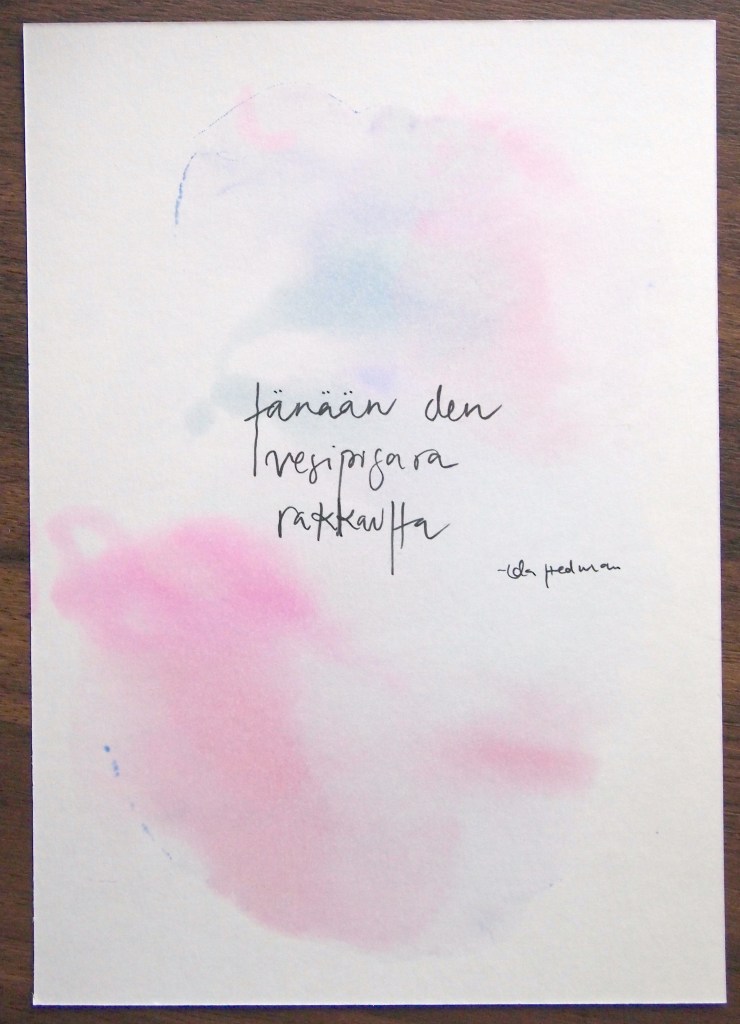 tänään olen
vesipisara
rakkautta
-Ida Hedman